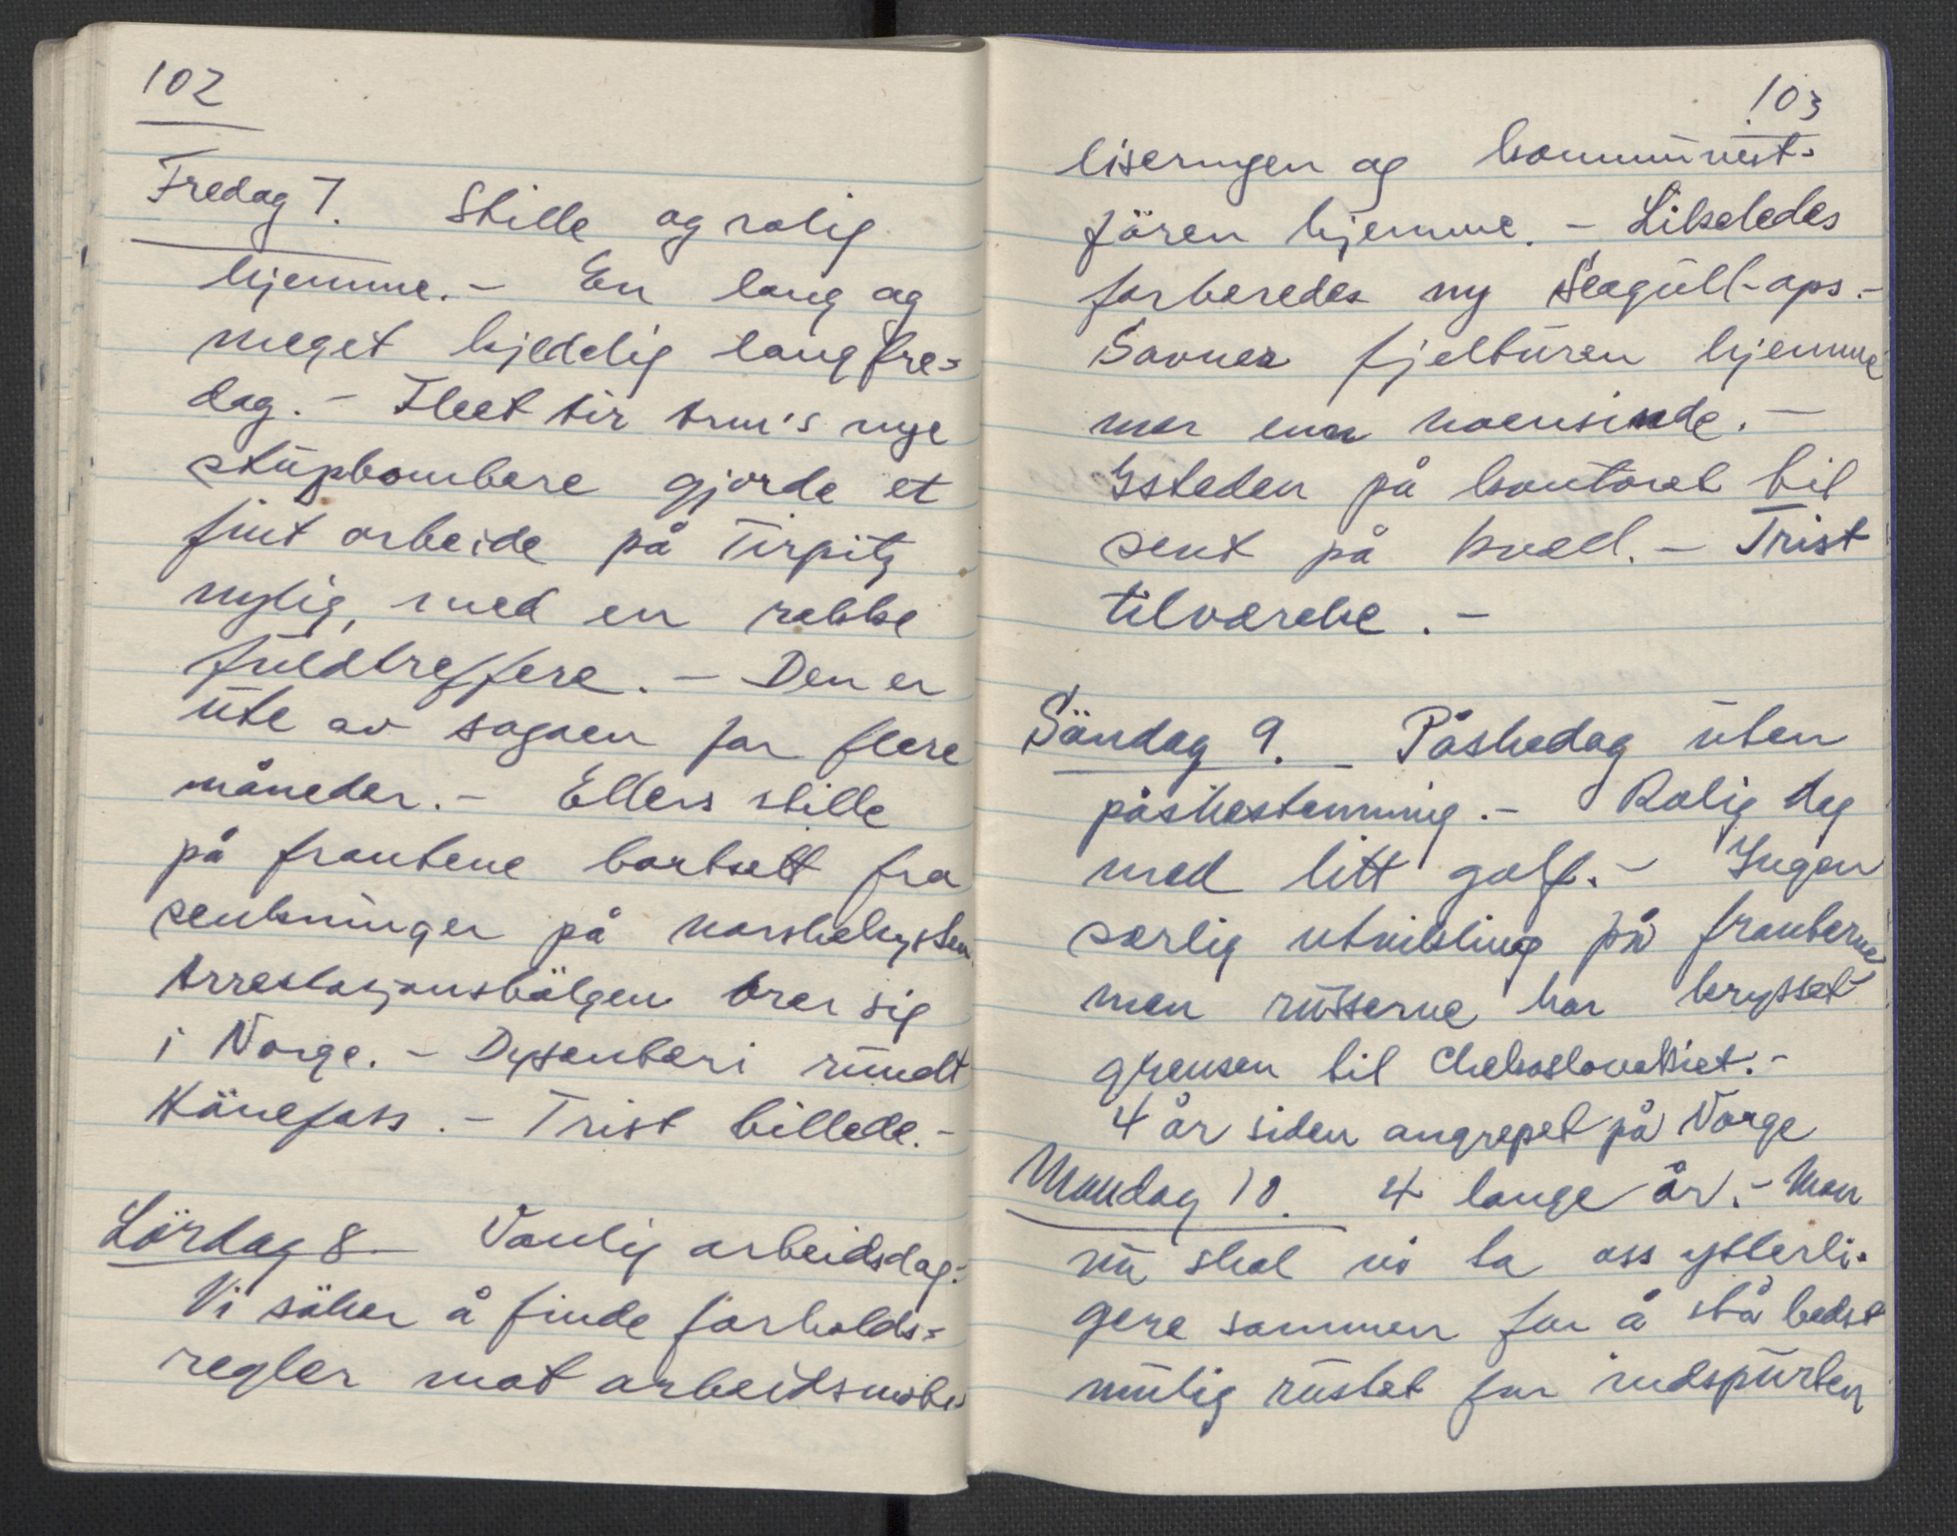 102
Fredag 7. Stille og rolig
hjemme. - En lang og
meget kjedelig langfre=
dag. - Fleet Air Arm's nye
stupbombere gjorde et
fint arbeide på Tirpitz
nylig, med en rekke
fuldtreffere. - Den er
ute av sagaen for flere
måneder. - Ellers stille
på frontene bortsett fra
senkninger på norskekysten.
Arrestasjonsbölgen brer sig
i Norge. - Dysenteri rundt
Hönefoss. - Trist billede. -
Lördag 8 - Vanlig arbeidsdag. -
Vi söker å finde forholds=
regler mot arbeidsmobi-
103
liseringen og kommunist=
fören hjemme. - Likeledes
forberedes ny Seagull-ops. -
Savner fjelturen hjemme
mer enn noensinde. -
Isteden på kontoret til
sent på kveld. - Trist
tilværelse. -
Söndag 9. - Påskedag uten
påskestemning. - Rolig dag
med litt golf. - Ingen
særlig utvikling på fronterne
men russerne har krysset
grensen til Chekoslovakiet. -
4 år siden angrepet på Norge
Mandag 10. 4 lange år. - Men
nu skal vi ta oss ytterli=
gere sammen for å stå bedst
mulig rustet for indspurten